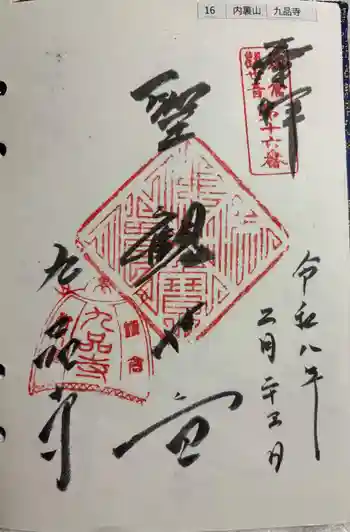 16 内裏山 九品寺
奉拝
鎌倉
観世音
第十六番
聖観世音
九品寺
鎌倉
九品寺
令和八年
二月二十五日